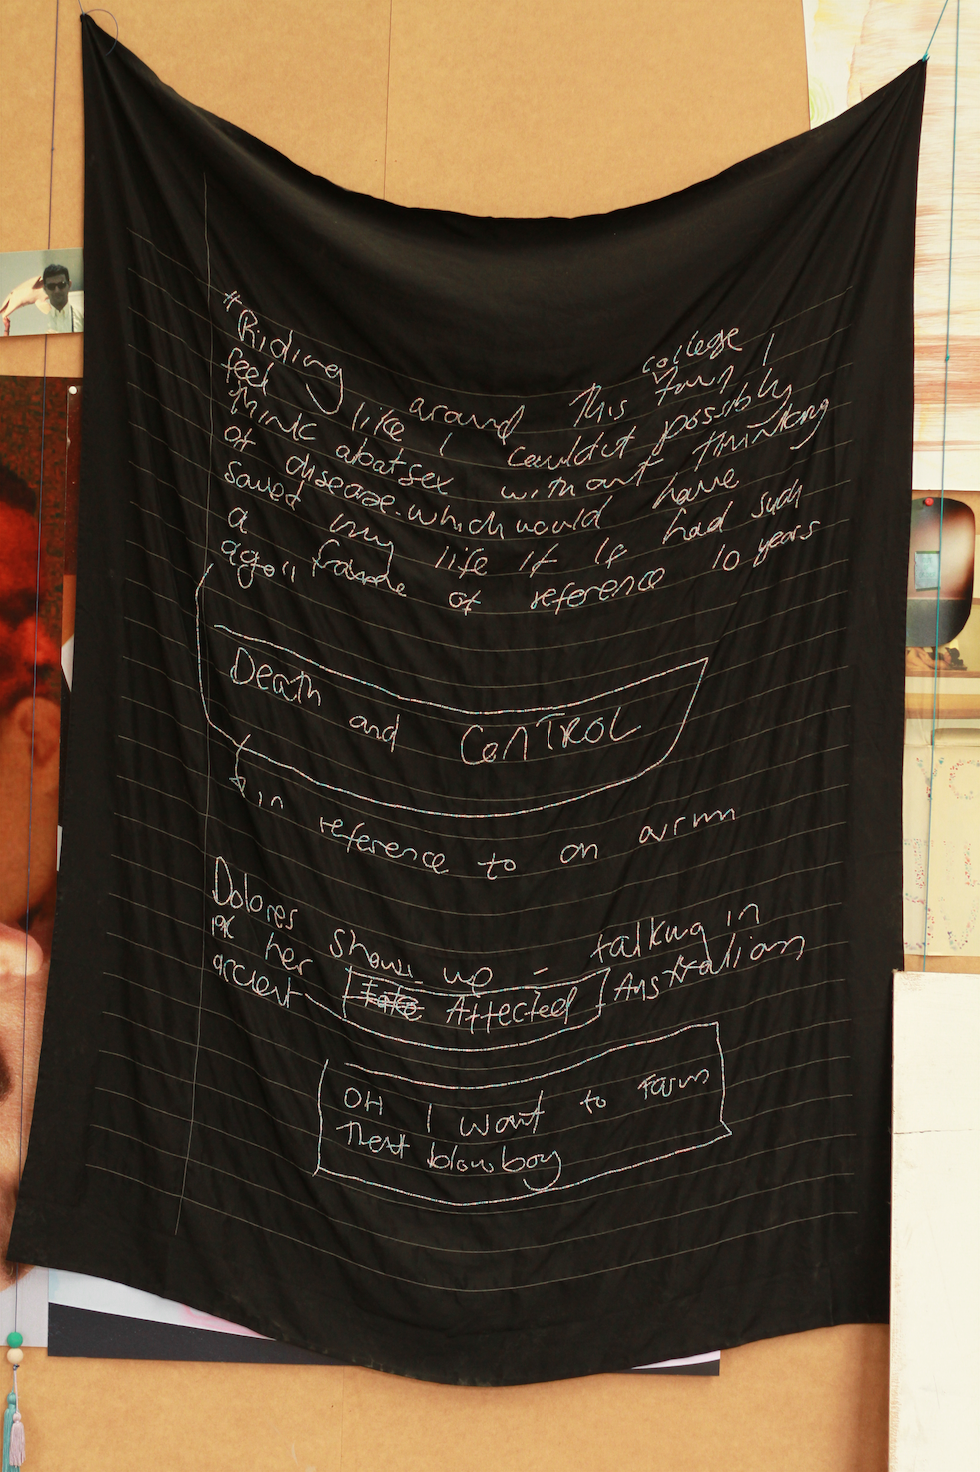 "Riding around this college town I
feel like I couldn't possibly
think about sex without thinking
of disease - which would have
saved my life if I'd had such
a frame of reference 10 years
ago"
Death and CONTROL
in reference to an
Dolores shows up - talking in
her Affected Australian
accent
OH I want to farm
that blowboy